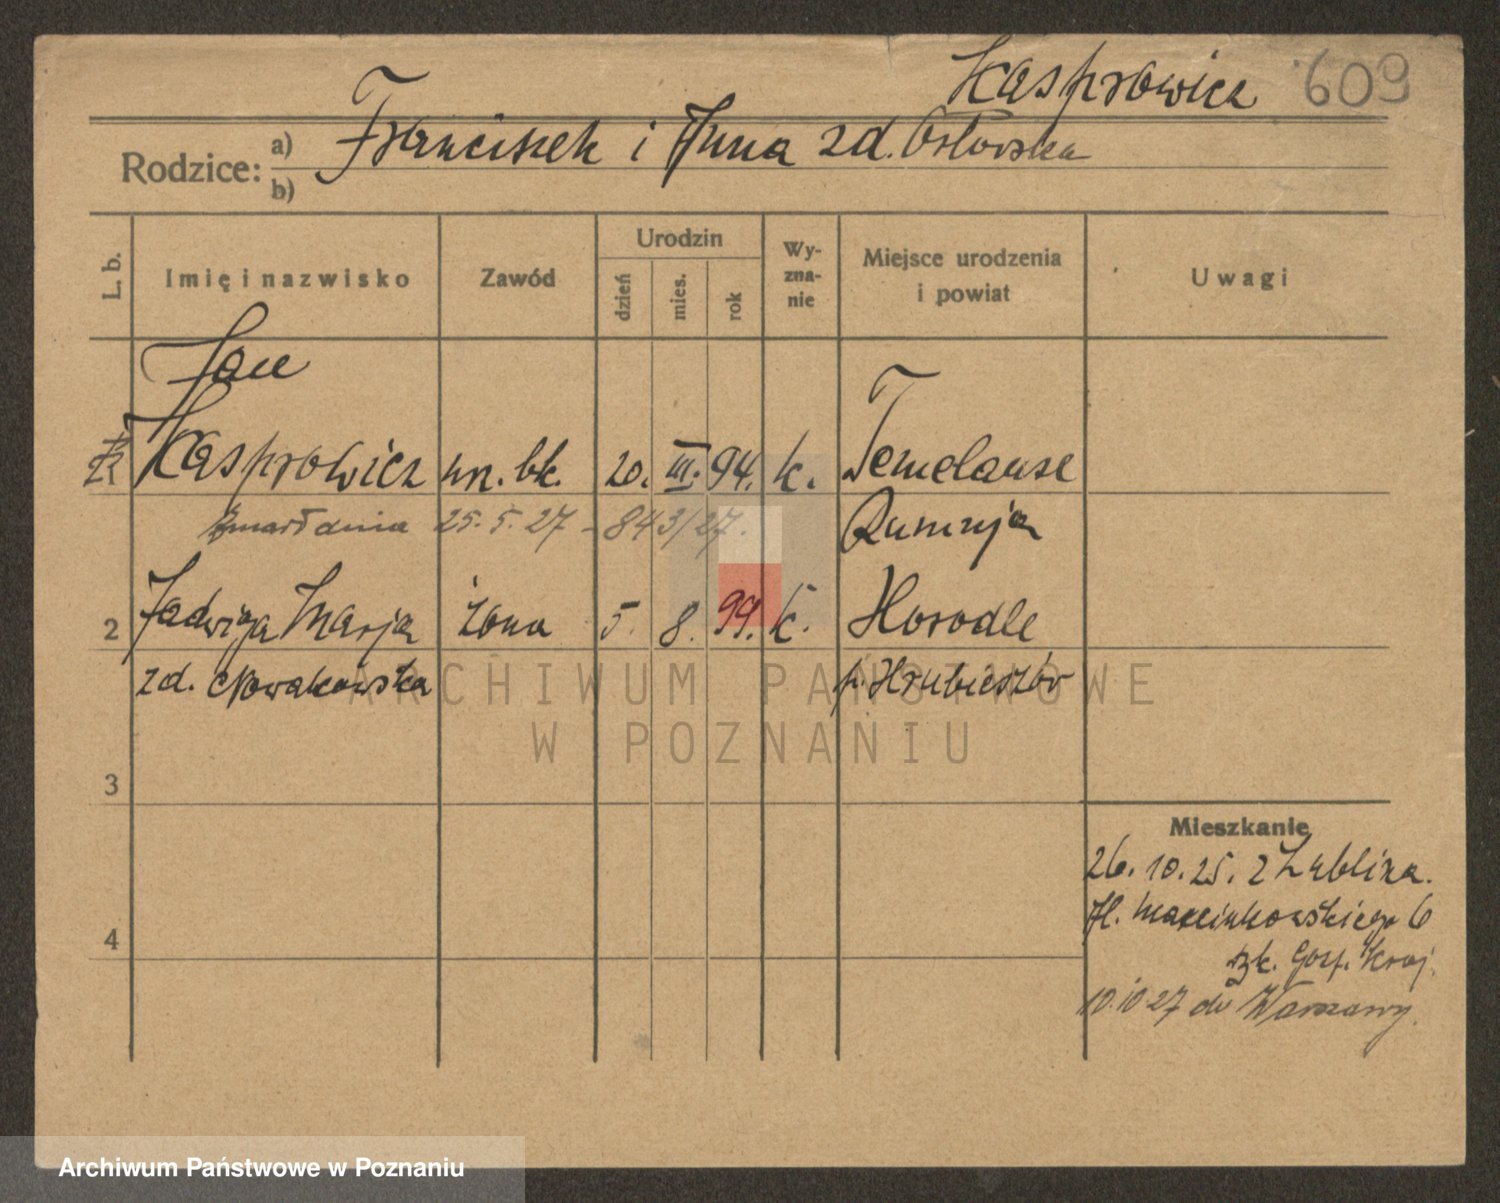 Kasprowicz 609
Rodzice: a) Franciszek i Anna zd. Orłowska
b)
L. b. Imię i nazwisko Zawód Urodzin dzień mies. rok Wyznanie Miejsce urodzenia i powiat Uwagi
Jan
Kasprowicz 20. III. 94. k.
zmarł dnia 25. 5. 27 - 843/27. Rumunja
2 Jadwiga Marja żona 5. 8. 99. k. Horodle
zd. Nowakowska p. Hrubieszów
ARCHIWUM PAŃSTWOWE
W POZNANIU
3
Mieszkanie
26. 10. 25. z Lublina.
Al. Marcinkowskiego 6
Bk. Gosp. Kraj.
4
10.10.27 do Warszawy.
Archiwum Państwowe w Poznaniu